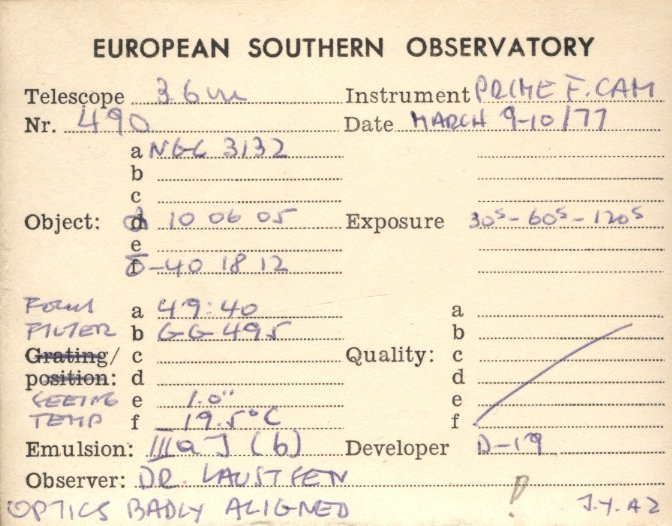 EUROPEAN SOUTHERN OBSERVATORY
Telescope 3.6m Instrument PRIME F. CAM
Nr. 490 Date MARCH 9-10/77
a NGC 3132
b
c
Object: α 10 06 05 Exposure 30s-60s-120s
e
δ -40 18 12
FOCUS a 49:40 a
FILTER b GG 495 b
Grating/ c Quality: c
position: d d
SEEING e 1.0" e
TEMP f 19.5°C f
Emulsion: IIIaJ (b) Developer D-19
Observer: DR. LAUSTSEN
OPTICS BADLY ALIGNED ! J.Y.AZ